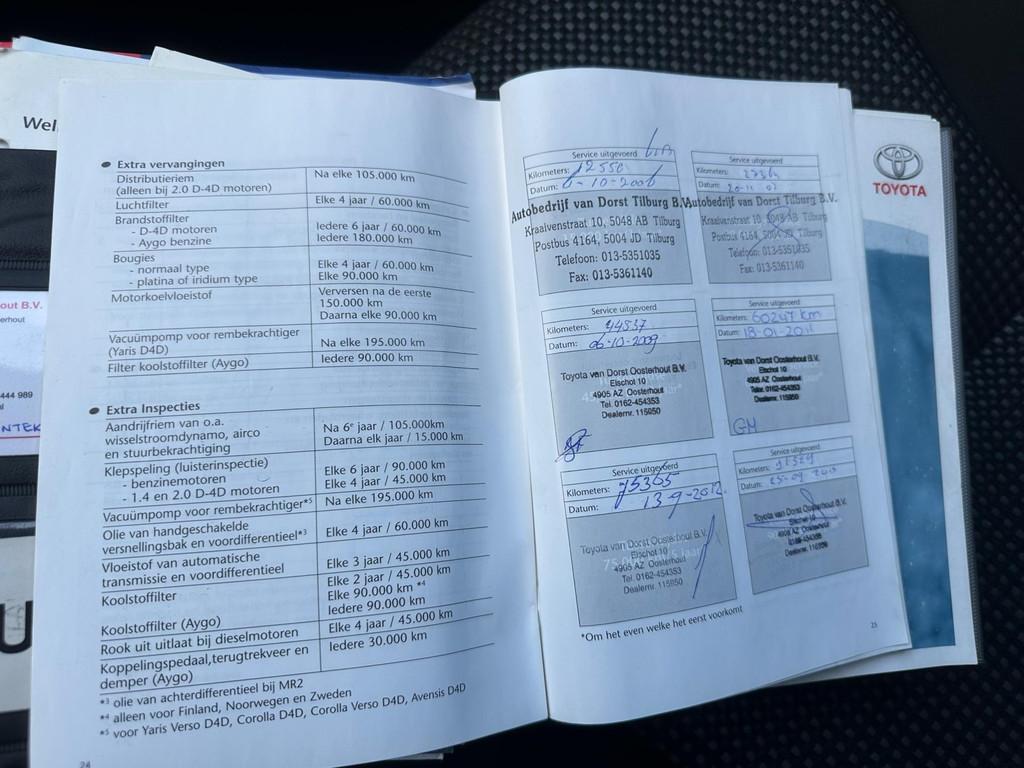 Wel
out B.V.
erhout
444 989
NTEK
U
• Extra vervangingen
Distributieriem Na elke 105.000 km
(alleen bij 2.0 D-4D motoren)
Luchtfilter Elke 4 jaar / 60.000 km
Brandstoffilter
- D-4D motoren Iedere 6 jaar / 60.000 km
- Aygo benzine Iedere 180.000 km
Bougies
- normaal type Elke 4 jaar / 60.000 km
- platina of iridium type Elke 90.000 km
Motorkoelvloeistof Verversen na de eerste
150.000 km
Daarna elke 90.000 km
Vacuümpomp voor rembekrachtiger
(Yaris D4D) Na elke 195.000 km
Filter koolstoffilter (Aygo) Iedere 90.000 km
• Extra Inspecties
Aandrijfriem van o.a.
wisselstroomdynamo, airco Na 6e jaar / 105.000km
en stuurbekrachtiging Daarna elk jaar / 15.000 km
Klepspeling (luisterinspectie)
- benzinemotoren Elke 6 jaar / 90.000 km
- 1.4 en 2.0 D-4D motoren Elke 4 jaar / 45.000 km
Vacuümpomp voor rembekrachtiger*5 Na elke 195.000 km
Olie van handgeschakelde
versnellingsbak en voordifferentieel*3 Elke 4 jaar / 60.000 km
Vloeistof van automatische
transmissie en voordifferentieel Elke 3 jaar / 45.000 km
Koolstoffilter Elke 2 jaar / 45.000 km
Elke 90.000 km *4
Koolstoffilter (Aygo) Iedere 90.000 km
Rook uit uitlaat bij dieselmotoren Elke 4 jaar / 45.000 km
Koppelingspedaal,terugtrekveer en Iedere 30.000 km
demper (Aygo)
*3 olie van achterdifferentieel bij MR2
*4 alleen voor Finland, Noorwegen en Zweden
*5 voor Yaris Verso D4D, Corolla D4D, Corolla Verso D4D, Avensis D4D
24
Service uitgevoerd
Kilometers: 12550
Datum: 6-10-2006
Autobedrijf van Dorst Tilburg B.V.
Kraaivenstraat 10, 5048 AB Tilburg
Postbus 4164, 5004 JD Tilburg
Telefoon: 013-5351035
Fax: 013-5361140
Service uitgevoerd
Kilometers:
Datum: 20-11-07
Autobedrijf van Dorst Tilburg B.V.
Kraaivenstraat 10, 5048 AB Tilburg
Postbus 4164, 5004 JD Tilburg
Telefoon: 013-5351035
Fax: 013-5361140
Service uitgevoerd
Kilometers: 44537
Datum: 06-10-2009
Toyota van Dorst Oosterhout B.V.
Elschot 10
4905 AZ Oosterhout
Tel. 0162-454353
Dealernr. 115950
Service uitgevoerd
Kilometers: 60247 km
Datum: 18-01-2011
Toyota van Dorst Oosterhout B.V.
Elschot 10
4905 AZ Oosterhout
Telnr. 0162-454353
Dealernr. 115950
GM
Service uitgevoerd
Kilometers: 75365
Datum: 13-9-2012
Toyota van Dorst Oosterhout B.V.
Elschot 10
4905 AZ Oosterhout
Tel. 0162-454353
Dealernr. 115950
Service uitgevoerd
Kilometers:
Datum:
Toyota van Dorst Oosterhout B.V.
Elschot 10
4905 AZ Oosterhout
Dealernr. 115950
*Om het even welke het eerst voorkomt
25
TOYOTA